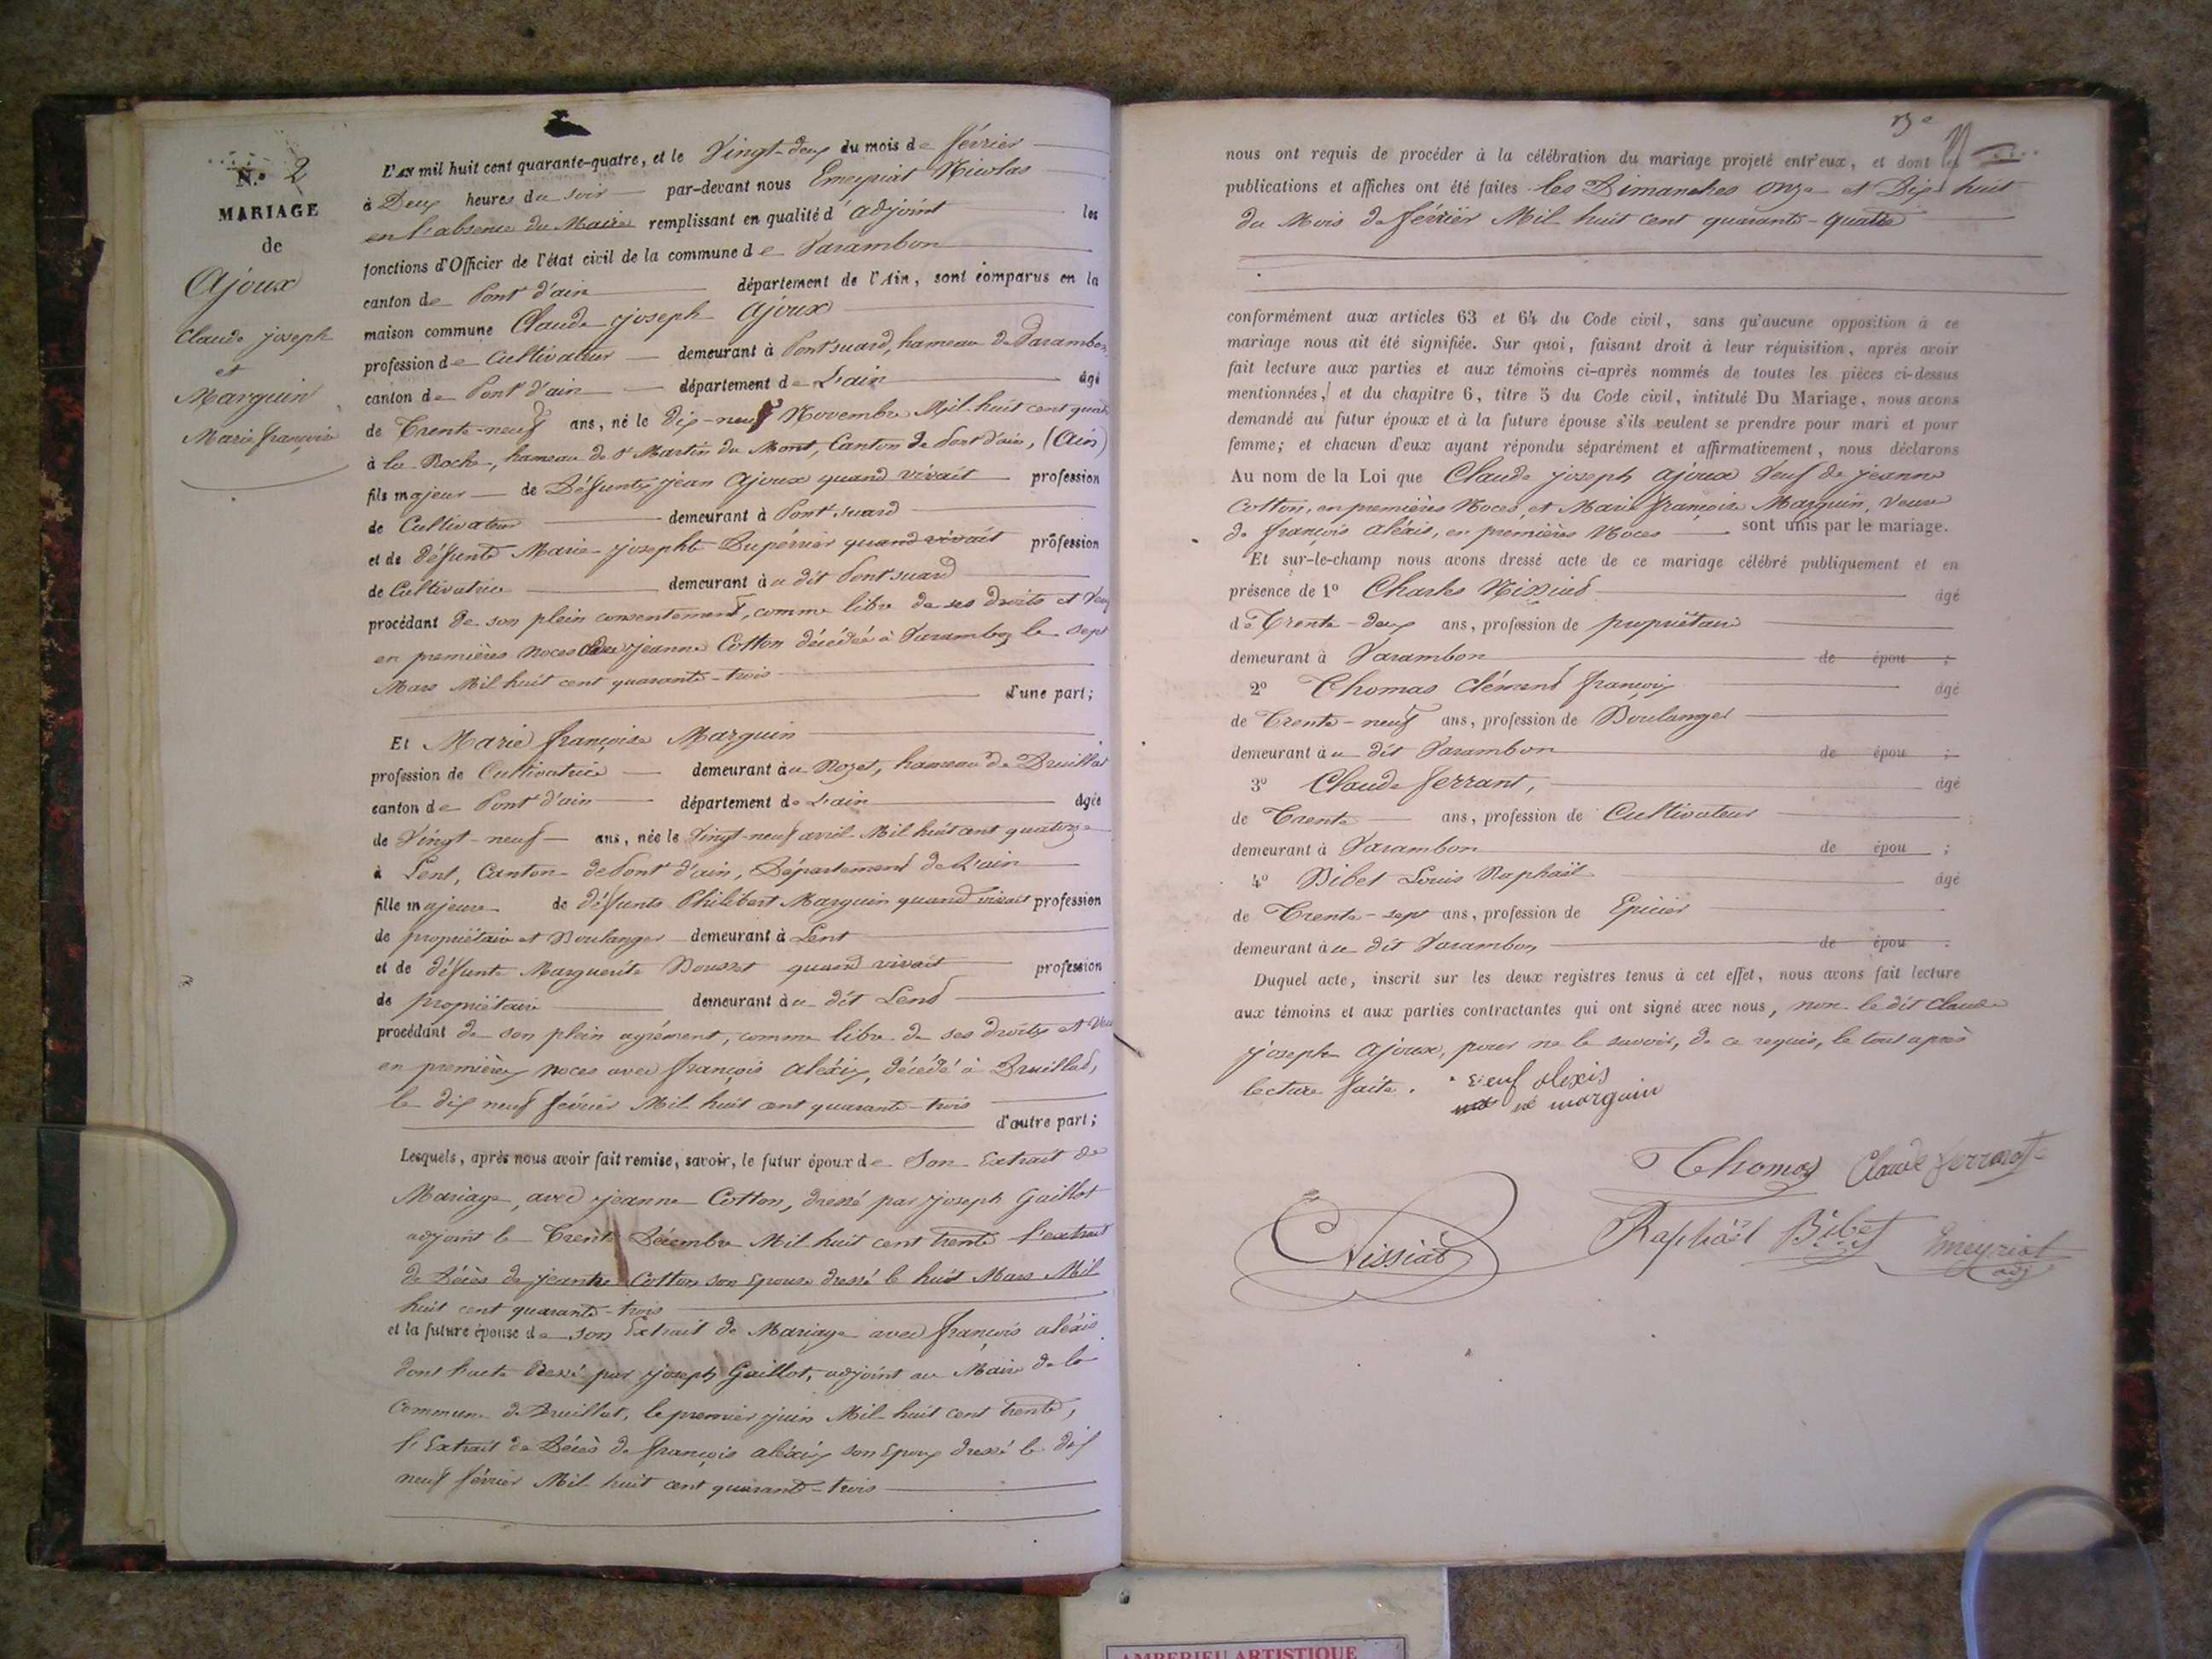 N.º 2
MARIAGE
de
Ajoux
Claude joseph
et
Marguin
Marie françoise
L'AN mil huit cent quarante-quatre, et le Vingt-deux du mois de février
à Deux heures du soir par-devant nous Emeyriat Nicolas
en l'absence du Maire remplissant en qualité d'adjoint les
fonctions d'Officier de l'état civil de la commune de Varambon
canton de Pont d'ain département de l'Ain, sont comparus en la
maison commune Claude joseph Ajoux
profession de Cultivateur demeurant à Pont suard, hameau de Varambon,
canton de Pont d'ain département de L'ain âgé
de Trente-neuf ans, né le dix-neuf Novembre Mil huit cent quatre
à la Roche, hameau de St Martin du Mont, Canton de Pont d'ain, (Ain)
fils majeur de Défunts jean Ajoux quand vivait profession
de Cultivateur demeurant à Pont suard
et de défunte Marie josephte Dupérrier quand vivait profession
de Cultivatrice demeurant àu dit Pont suard
procédant de son plein consentement, comme libre de ses droits et Veuf
en premières noces de jeanne Cotton décédée à Varambon le sept
Mars Mil huit cent quarante-trois
d'une part;
Et Marie françoise Marguin
profession de Cultivatrice demeurant àu Rozet, hameau de Druillat
canton de Pont d'ain département de L'ain âgée
de Vingt-neuf ans, née le Vingt-neuf avril Mil huit cent quatorze
à Lent, Canton de Pont d'ain, Département de L'ain
fille majeure de défunts Philibert Marguin quand vivait profession
de propriétaire et Boulanger demeurant à Lent
et de défunte Marguerite Bousset quand vivait profession
de propriétaire demeurant àu dit Lent
procédant de son plein agrément, comme libre de ses droits et Veuve
en premières noces avec françois aléxis, décédé à Druillat,
le dix neuf février Mil huit cent quarante-trois
d'autre part;
Lesquels, après nous avoir fait remise, savoir, le futur époux de Son Extrait de
Mariage, avec jeanne Cotton, dressé par joseph Gaillot
adjoint le Trente Décembre Mil huit cent trente l'extrait
de Décès de jeanne Cotton son Epouse dressé le huit Mars Mil
huit cent quarante-trois
et la future épouse de son Extrait de Mariage avec françois aléxis
dont l'acte dressé par joseph Gaillot, adjoint au Maire de la
Commune de Druillat, le premier juin Mil huit cent trente,
l'Extrait de Décès de françois aléxis son Epoux dressé le dix
neuf février Mil huit cent quarante-trois
nous ont requis de procéder à la célébration du mariage projeté entr'eux, et dont les
publications et affiches ont été faites les Dimanches onze et Dix huit
du Mois de février Mil huit cent quarante-quatre
conformément aux articles 63 et 64 du Code civil, sans qu'aucune opposition à ce
mariage nous ait été signifiée. Sur quoi, faisant droit à leur réquisition, après avoir
fait lecture aux parties et aux témoins ci-après nommés de toutes les pièces ci-dessus
mentionnées, et du chapitre 6, titre 5 du Code civil, intitulé Du Mariage, nous avons
demandé au futur époux et à la future épouse s'ils veulent se prendre pour mari et pour
femme; et chacun d'eux ayant répondu séparément et affirmativement, nous déclarons
Au nom de la Loi que Claude joseph ajoux Veuf de jeanne
Cotton, en premières Noces, et Marie françoise Marguin, Veuve
de françois aléxis, en premières Noces sont unis par le mariage.
Et sur-le-champ nous avons dressé acte de ce mariage célébré publiquement et en
présence de 1º Charles Nissiat âgé
de Trente-deux ans, profession de propriétaire
demeurant à Varambon de épou ;
2º Thomas Clément françois âgé
de Trente-neuf ans, profession de Boulanger
demeurant àu dit Varambon de épou ;
3º Claude ferrant, âgé
de Trente ans, profession de Cultivateur
demeurant à Varambon de épou ;
4º Bibet Louis Raphaël âgé
de Trente-sept ans, profession de Epicier
demeurant àu dit Varambon de épou .
Duquel acte, inscrit sur les deux registres tenus à cet effet, nous avons fait lecture
aux témoins et aux parties contractantes qui ont signé avec nous, non le dit Claude
joseph Ajoux, pour ne le savoir, de ce requis, le tout après
lecture faite. veuf alexis
né marguin
Thomas Claude ferrant
CNissiat Raphaël Bibet Emeyriat
adj
AMBERIEU ARTISTIQUE